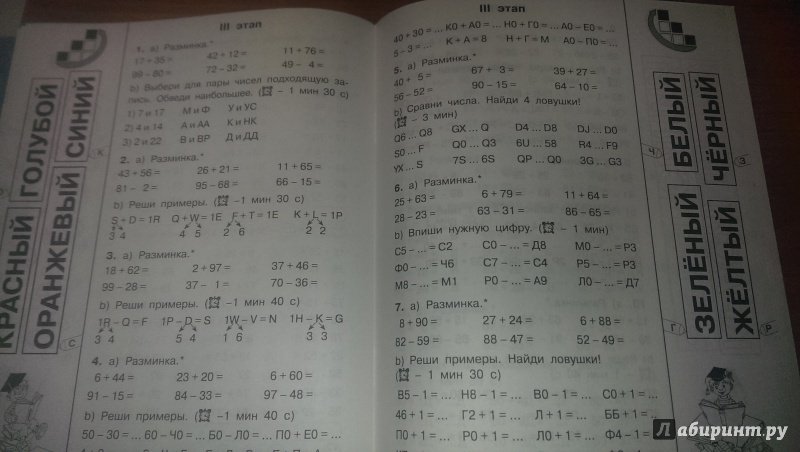 III этап
1. а) Разминка.*
17 + 35 = 42 + 12 = 11 + 76 =
99 – 80 = 72 – 32 = 49 – 4 =
b) Выбери для пары чисел подходящую за-
пись. Обведи наибольшее. ( – 1 мин 30 с)
1) 7 и 17 М и Ф У и УС
2) 4 и 14 А и АА К и НК
3) 2 и 22 В и ВР Д и ДД
2. а) Разминка.*
43 + 56 = 26 + 21 = 11 + 65 =
81 – 2 = 95 – 68 = 66 – 15 =
b) Реши примеры. ( –1 мин 30 с)
S + D = 1R Q + W = 1E F + T = 1E K + L = 1P
3 4 4 5 2 6 2 2
3. а) Разминка.*
18 + 62 = 2 + 97 = 37 + 46 =
99 – 28 = 37 – 1 = 70 – 36 =
b) Реши примеры. ( –1 мин 40 с)
1R – Q = F 1P – D = S 1W – V = N 1H – K = G
3 4 5 4 1 6 3 3
4. а) Разминка.*
6 + 44 = 23 + 20 = 6 + 60 =
91 – 15 = 84 – 33 = 97 – 48 =
b) Реши примеры. ( –1 мин 40 с)
50 – 30 = ... 60 – Ч0 = ... Б0 – Л0 = ... П0 + Е0 = ...
ГОЛУБОЙ
СИНИЙ
КРАСНЫЙ
ОРАНЖЕВЫЙ
К
С
III этап
40 + 30 = ... К0 + А0 = ... Н0 + Г0 = ... А0 – Е0 = ...
5 – 3 = ... К + А = 8 Н + Г = М А0 – П0 = ...
5. а) Разминка.*
40 + 5 = 67 + 3 = 39 + 27 =
56 – 52 = 90 – 15 = 64 – 10 =
b) Сравни числа. Найди 4 ловушки!
( – 3 мин)
Q6 ... Q8 GX ... Q D4 ... D8 DJ ... D0
S0 ... F Q0 ... Q3 6U ... 58 R4 ... F9
YX ... S 7S ... 6S QP ... Q0 3G ... G3
6. а) Разминка.*
25 + 63 = 6 + 79 = 11 + 64 =
28 – 23 = 63 – 31 = 86 – 65 =
b) Впиши нужную цифру. ( – 1 мин)
С5 – ... = С2 С0 – ... = Д8 М0 – ... = Р3
Ф0 – ... = Ч6 С7 – ... = С4 Р5 – ... = Р3
М8 – ... = М1 Р0 – ... = А9 Л0 – ... = Д7
7. а) Разминка.*
8 + 90 = 27 + 24 = 6 + 88 =
82 – 59 = 88 – 47 = 52 – 49 =
b) Реши примеры. Найди ловушки!
( – 1 мин 30 с)
В5 – 1 = ... Н8 – 1 = ... В0 – 1 = ... С0 + 1 = ...
46 + 1 = ... Г2 + 1 = ... Л + 1 = ... ББ + 1 = ...
П0 + 1 = ... Р0 + 1 = ... Л0 + 1 = ... Ф4 – 1 = ...
БЕЛЫЙ
ЧЁРНЫЙ
Ч
З
ЗЕЛЁНЫЙ
ЖЁЛТЫЙ
Г
Р
Лабиринт.ру